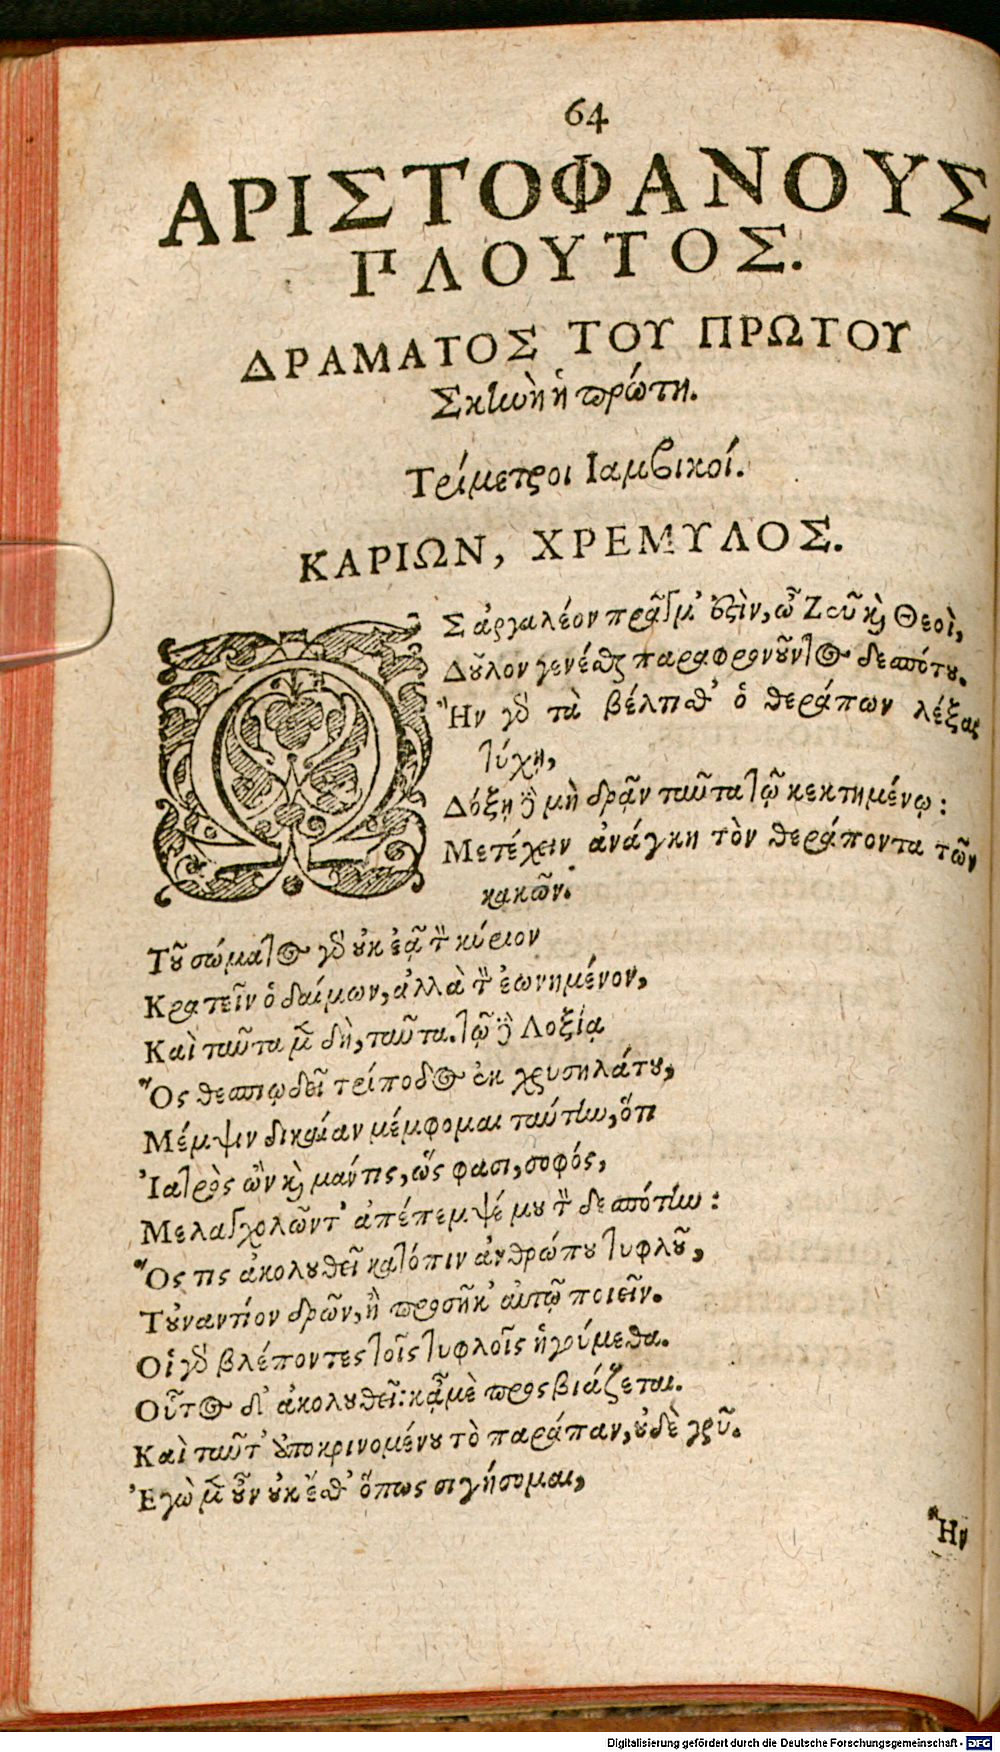 64
ΑΡΙΣΤΟΦΑΝΟΥΣ
ΠΛΟΥΤΟΣ.
ΔΡΑΜΑΤΟΣ ΤΟΥ ΠΡΩΤΟΥ
Σκηνὴ ἡ πρώτη.
Τρίμετροι Ιαμβικοί.
ΚΑΡΙΩΝ, ΧΡΕΜΥΛΟΣ.
ΩΣ ἀργαλέον πρᾶγμ' ἐςὶν, ὦ Ζεῦ κὶ Θεοὶ,
Δοῦλον γενέσθαι παραφρονοῦντος δεσπότου.
Ἢν γὸ τὰ βέλτισθ' ὁ θεράπων λέξας
τύχῃ,
Δόξῃ δὲ μὴ δρᾷν ταῦτα τῷ κεκτημένῳ:
Μετέχειν ἀνάγκη τὸν θεράποντα τῶν
κακῶν.
Τοῦ σώματος γὸ οὐκ ἐᾷ τὸν κύριον
Κρατεῖν ὁ δαίμων, ἀλλὰ τὸν ἐωνημένον,
Καὶ ταῦτα μὲν δὴ, ταῦτα. τῷ δὲ Λοξίᾳ
Ὃς θεσπιῳδεῖ τρίποδος ἐκ χρυσηλάτου,
Μέμψιν δικαίαν μέμφομαι ταύτην, ὅτι
Ἰατρὸς ὢν κὶ μάντις, ὥς φασι, σοφός,
Μελαγχολῶντ' ἀπέπεμψέ μου τὸν δεσπότην:
Ὅς τις ἀκολουθεῖ κατόπιν ἀνθρώπου τυφλοῦ,
Τοὐναντίον δρῶν, ἢ προσῆκ' αὐτῷ ποιεῖν.
Οἱ γὸ βλέποντες τοῖς τυφλοῖς ἡγούμεθα.
Οὗτος δ' ἀκολουθεῖ: κᾀμὲ προςβιάζεται.
Καὶ ταῦτ' ἀποκρινομένου τὸ παράπαν, οὐδὲ γρῦ.
Ἐγὼ μὲν οὖν οὐκ ἔσθ' ὅπως σιγήσομαι,
Ἢν
Digitalisierung gefördert durch die Deutsche Forschungsgemeinschaft - DFG